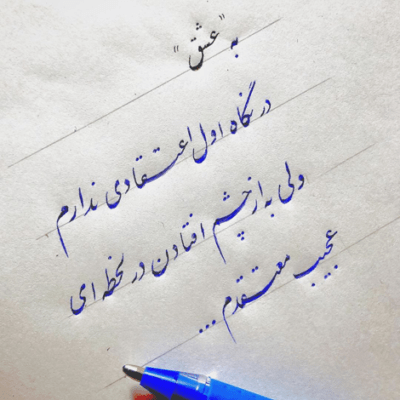 به "عشق"
در نگاه اول اعتقادی ندارم
ولی به از چشم افتادن در لحظه ای
عجیب معتقدم ...